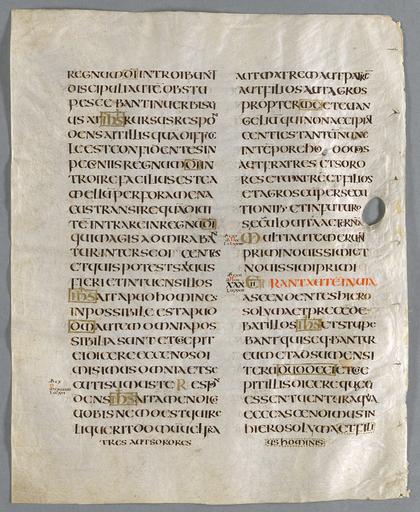 REGNUM DI INTROIBUNT
DISCIPULI AUTE OBSTU
PESCEBANT IN UERBIS EI
US AT IHS RURSUS RESPON
DENS AIT ILLIS QUA DIFFICI
LE EST CONFIDENTES IN
PECUNIIS REGNUM DI IN
TROIRE FACILIUS EST CA
MELU PER FORAMEN A
CUS TRANSIRE QUA DIUI
TE INTRARE IN REGNO DI
QUI MAGIS ADMIRABAN
TUR INTER SE DICENTES
ET QUIS POTEST SALUUS
FIERI ET INTUENS ILLOS
IHS AIT APUD HOMINES
INPOSSIBILE EST APUD
DM AUTEM OMNIA POS
SIBILIA SUNT ET COEPIT
EI DICERE ECCE NOS DI
MISIMUS OMNIA ET SE
CUTI SUMUS TE RESPON
DENS IHS AIT AMEN DICO
UOBIS NEMO EST QUI RE
LIQUERIT DOMU UEL FRA
TRES AUT SORORES
AUT MATREM AUT PATRE
AUT FILIOS AUT AGROS
PROPTER ME ET EUAN
GELIU QUI NON ACCIPIAT
CENTIES TANTU NUNC
IN TEPORE HOC DOMOS
AUT FRATRES ET SORO
RES ET MATRE ET FILIOS
ET AGROS CU PERSECU
TIONIB ET IN FUTURO
SECULO UITA AETERNA
MULTI AUTEM ERUNT
PRIMI NOUISSIMI ET
NOUISSIMI PRIMI
ERANT AUTEM IN UIA
ASCENDENTES HIERO
SOLYMA ET PRECEDE
BAT ILLOS IHS ET STUPE
BANT QUI SEQUEBANTUR
EUM ET ADSUMENS I
TERU DUODECI COE
PIT ILLIS DICERE QUAE
ESSENT UENTURA QUIA
ECCE ASCENDIMUS IN
HIEROSOLYMA ET FILI
US HOMINIS